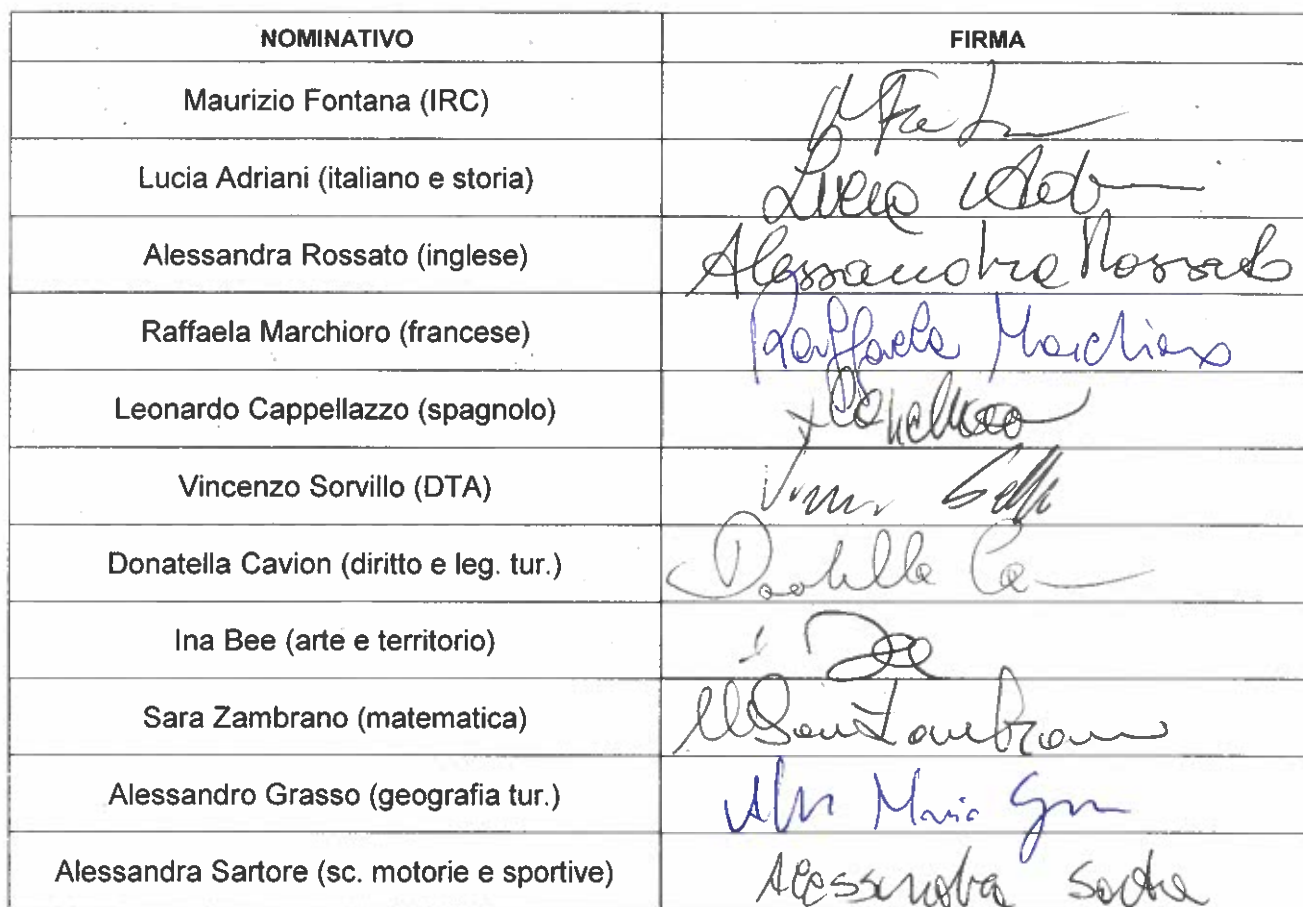 NOMINATIVO FIRMA
Maurizio Fontana (IRC)
Lucia Adriani (italiano e storia) Lucia
Alessandra Rossato (inglese) Alessandra Rossato
Raffaela Marchioro (francese) Raffaela Marchioro
Leonardo Cappellazzo (spagnolo)
Vincenzo Sorvillo (DTA)
Donatella Cavion (diritto e leg. tur.) Donatella
Ina Bee (arte e territorio)
Sara Zambrano (matematica)
Alessandro Grasso (geografia tur.) Maria
Alessandra Sartore (sc. motorie e sportive) Alessandra